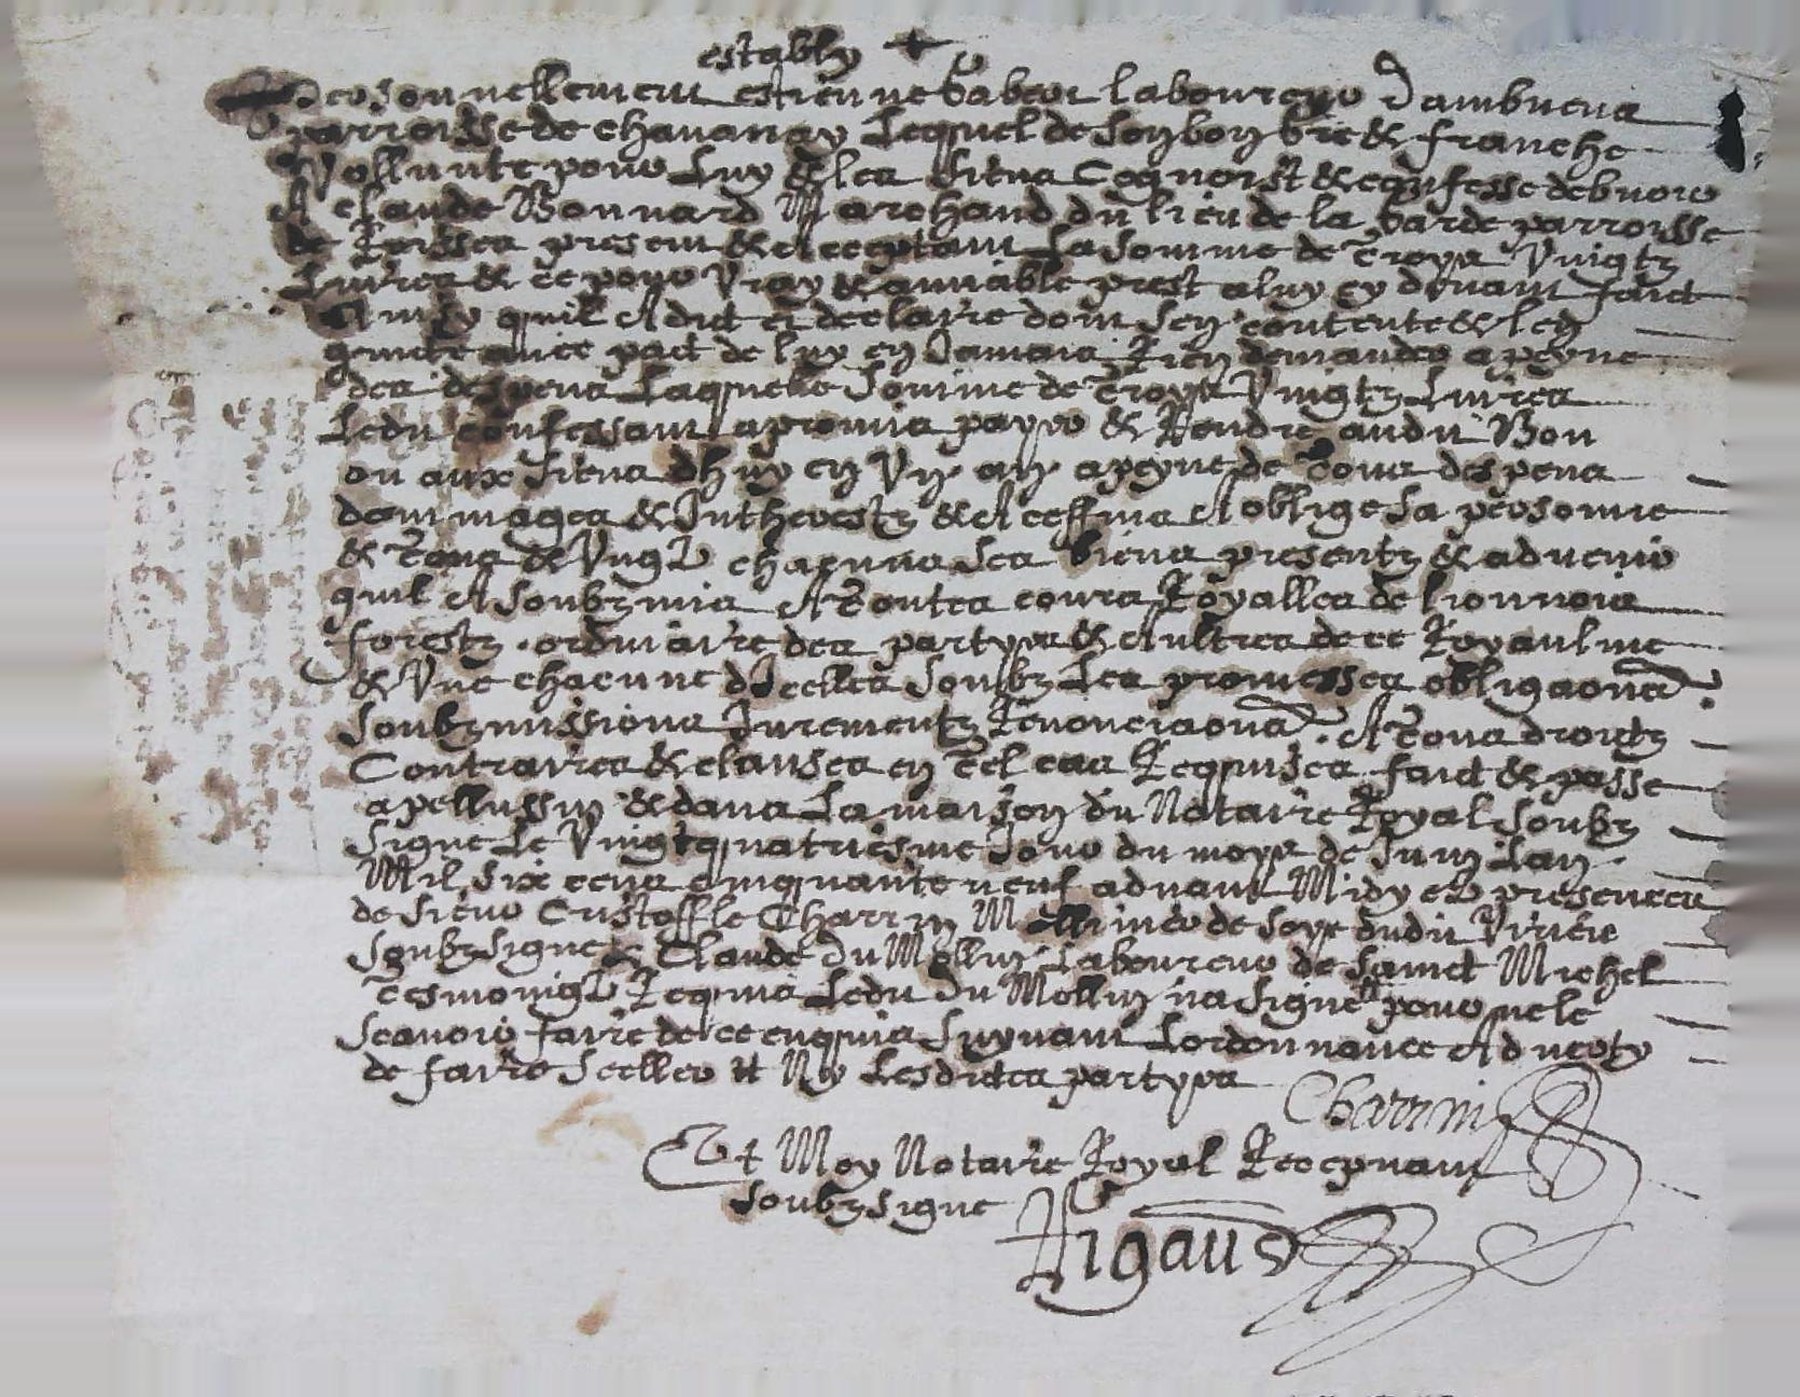 estably +
Personnellement estienne babeon laboureyo dambuens
parroisse de chavanay Lequel de son bon gre & franche
Vollunte pour Luy & les siens Cognoist & confesse debvoir
A Claude Bonnard Marchand du lieu de la garde parroisse
de present & acceptant La somme de Troys Vingtz
Livres & ce pour Vray & amiable prest a luy cy devant faict
Ainsy quil A dict et declaire dont sen contente & len
quicte avec pact de luy en Jamais Rien demander a peyne
des despens Laquelle somme de Troys Vingtz Livres
Ledit confessant a promis payer & Rendre audit Bon
ou aux siens dhuy en Vn an a peyne de Tous despens
dommages &Intherestz & A ceffins A oblige sa personne
& Tous & Vngt chacuns ses biens presentz & advenir
quil A soubzmis A Toutes cours Royalles de lionnois
forestz ordinaire des partyes & Aultres de ce Royaulme
& Vne chacune dJcelles soubz Les promesses obligaons
soubzmissions Jurementz Renonciaons A Tous droictz
Contraires & clauses en Tel cas Requises faict & passe
a pellussin & dans La maison du Notaire Royal soubz
signe Le Vingtquatriesme Jour du moys de Juin Lan
Mil six cens cinquante neuf advant Midy et presences
de sieur Cristoffle Charrin Mollinier de soye dudit Virieu
soubzsigne & Claude du Mollin Laboureur de sainct Michel
Tesmoingt Requis Ledit du Mollin na signe pour ne le
scavoir faire de ce enquis suyvant Lordonnance Adverty
de faire sceller et Ny Lesdictes partyes
Charrin
Et Moy Notaire Royal Recepvant
soubzsigne
Rigaud